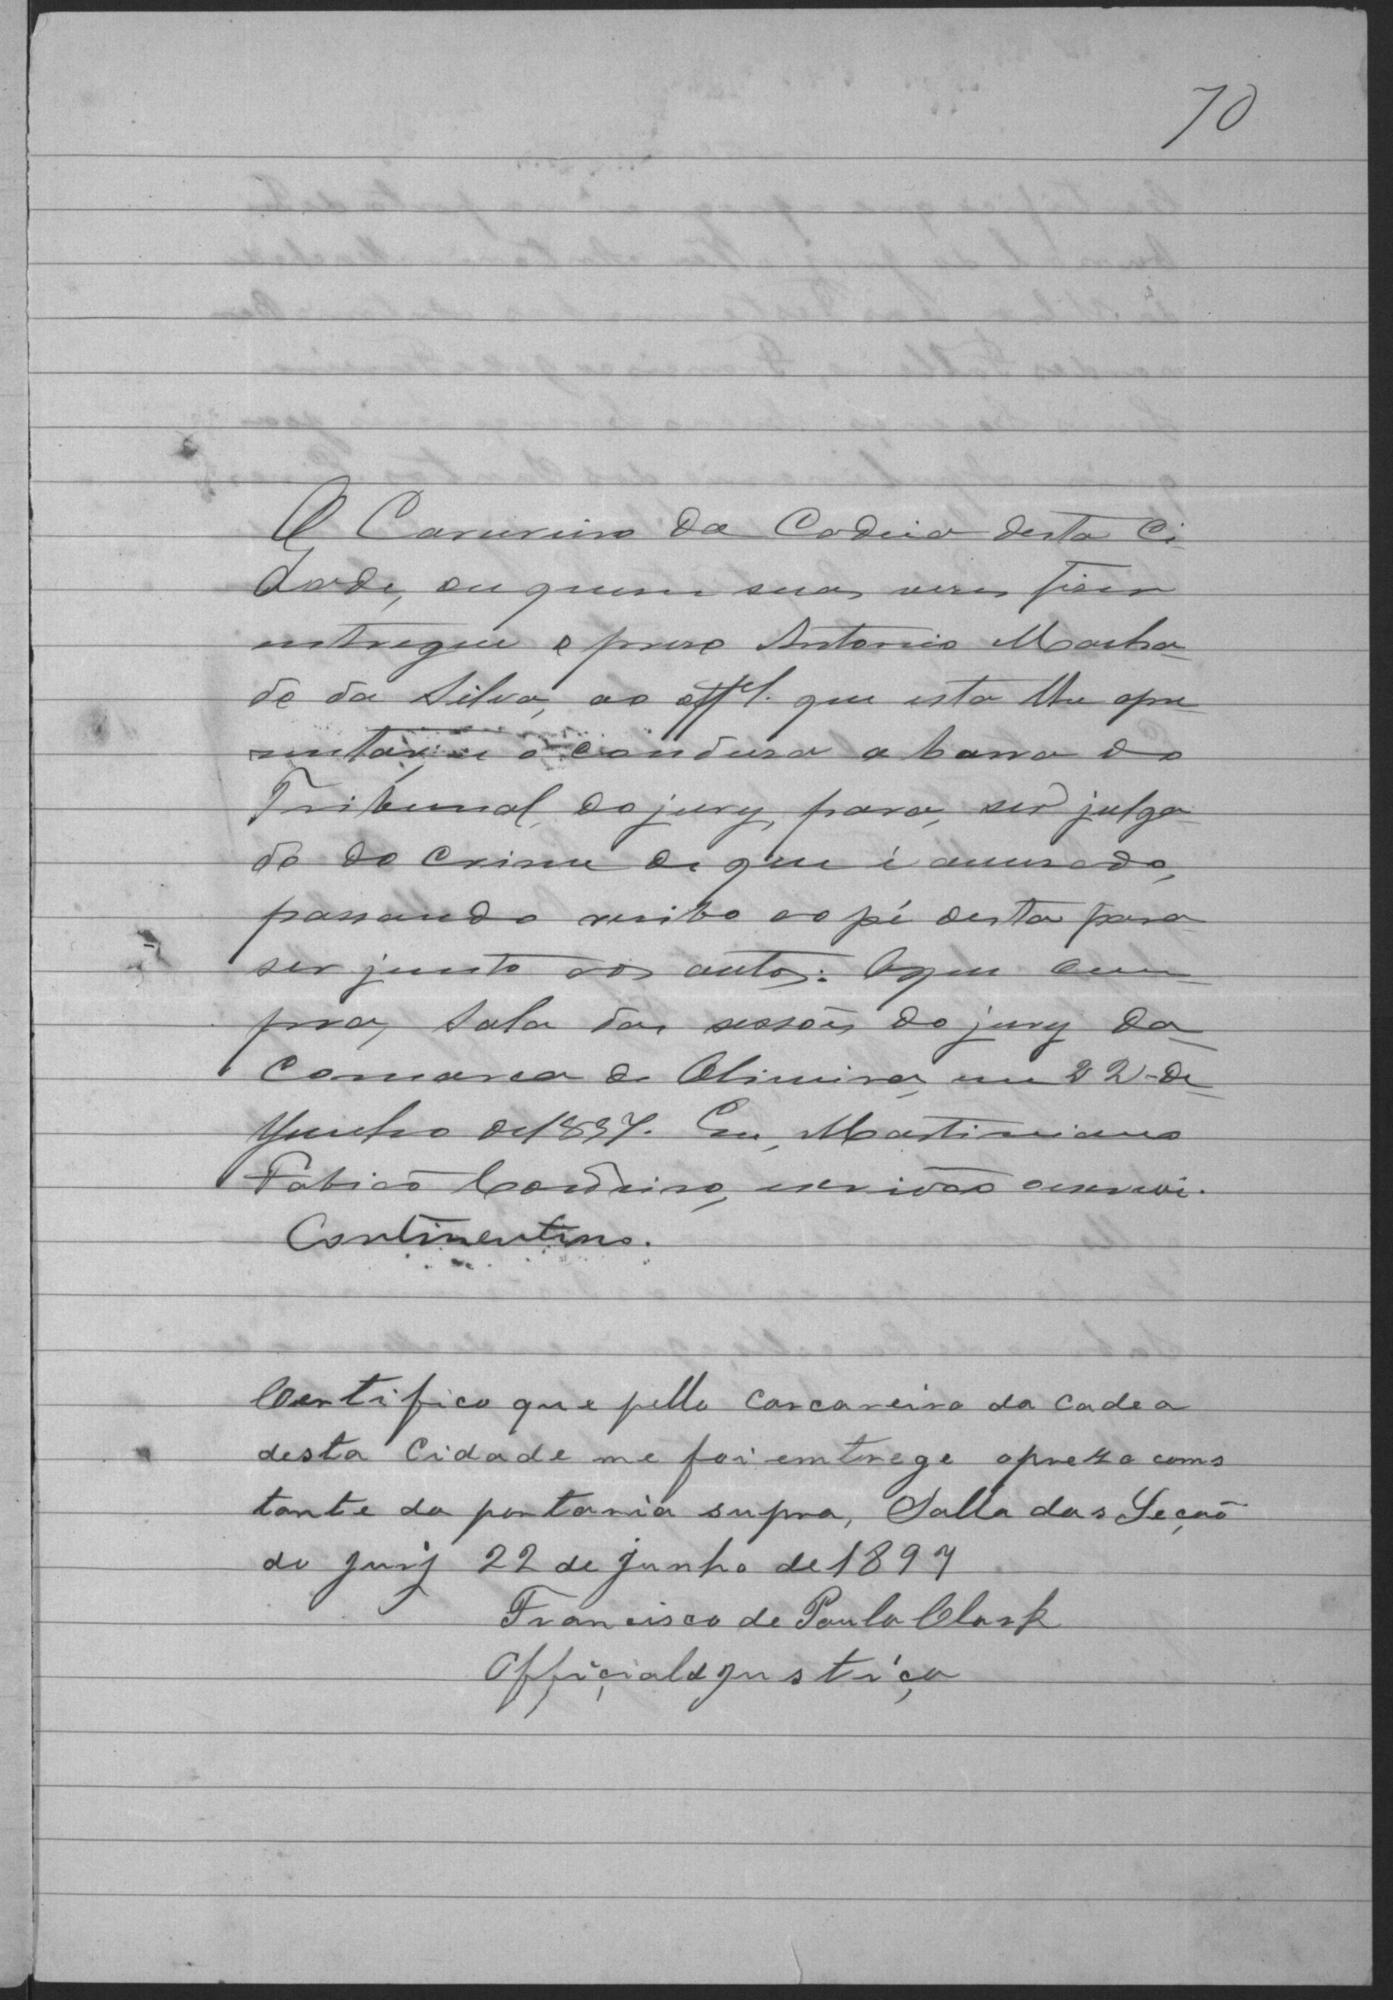 70
O Carcereiro da Cadeia desta Ci-
dade, ou quem suas veses fizer
entregue o preso Antonio Macha-
do da Silva, ao offal. que esta lhe apre-
sentar, e o condusa a barra do
Tribunal do jury, para, ser julga-
do do crime de que é accusado,
passando recibo ao pé desta para
ser junto aos autos. O que cum-
pra, Sala das sessões do jury da
Comarca de Oliveira, em 22 de
Junho de 1897. Eu, Martiniano
Fabião Cordeiro, escrivão escrevi.
Continentino.
Certifico que pello carcareiro da cadea
desta Cidade me foi emtrege opreso coms
tante da portaria supra, Salla das Seçaõ
do jurj 22 de junho de 1897
Francisco de Paula Clark
Officialdejustiça